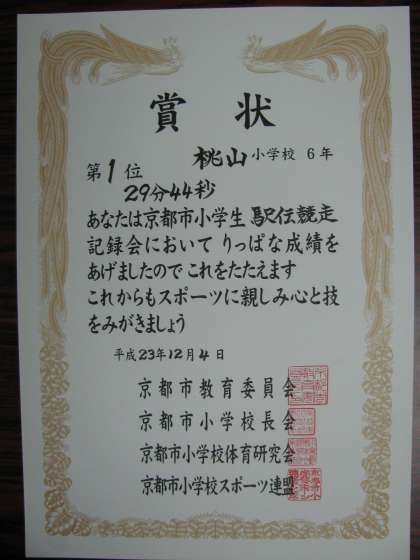 賞状
桃山小学校 6年
第1位
29分44秒
あなたは京都市小学生駅伝競走
記録会において りっぱな成績を
あげましたので これをたたえます
これからもスポーツに親しみ心と技
をみがきましょう
平成23年12月4日
京都市教育委員会
京都市小学校長会
京都市小学校体育研究会
京都市小学校スポーツ連盟